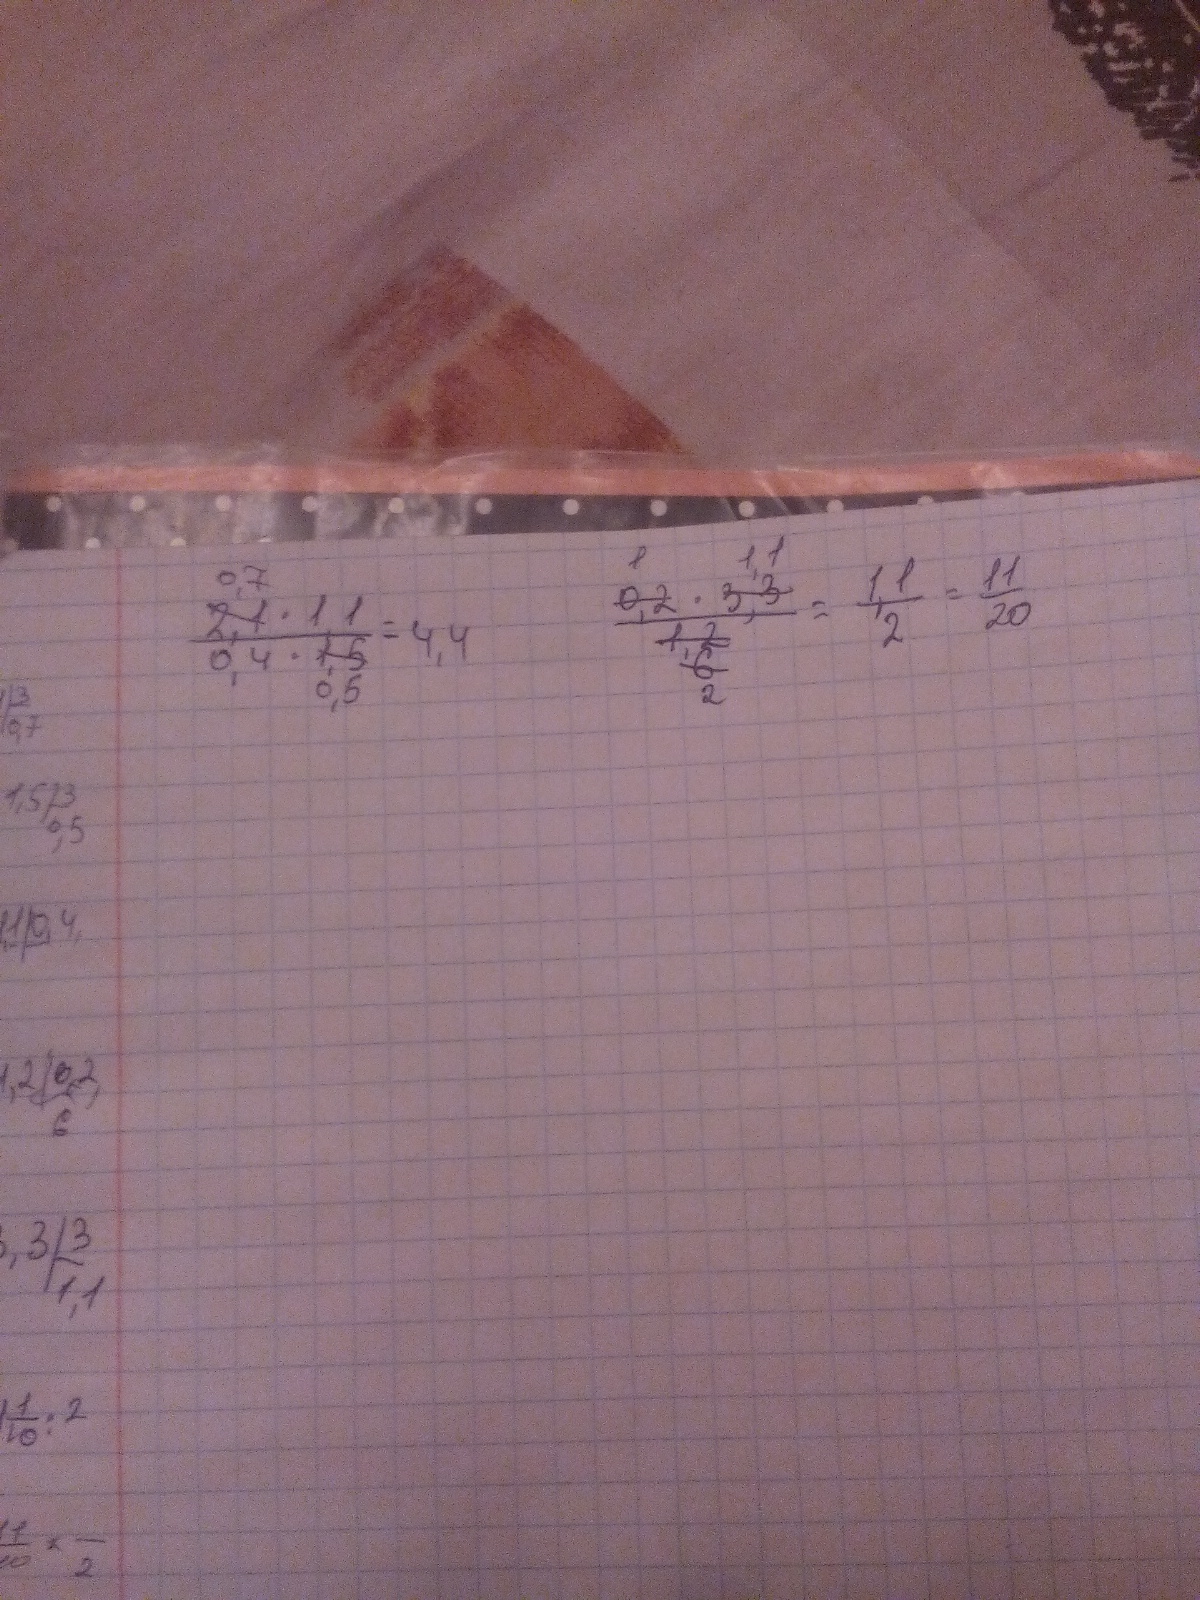 0,7
2,1 · 1,1
0,4 · 1,5 = 4,4
0,5
1 1,1
0,2 · 3,3
1,2
6
2
= 1,1/2 = 11/20
3
0,7
1,5 3
0,5
1 0,4
1,2 0,2
6
3,3 3
1,1
1/10 : 2
11/10
2